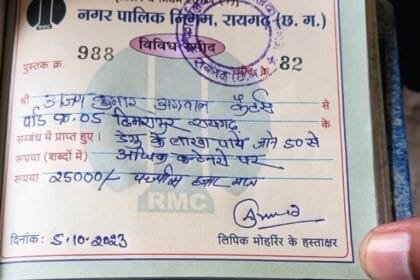 नगर पालिक निगम, रायगढ़ (छ. ग.)
RMC
विविध रसीद
पुस्तक क्र. 988 82
श्री अजय कुमार अग्रवाल से
वार्ड क्र. 05 रायगढ़
संबंध में प्राप्त हुए। डेंगू के लार्वा पाये जाने 50 से
रूपया (शब्दों में) अधिक कन्टेनरो पर
रूपया 25000/- पच्चीस हजार मात्र
RMC
दिनांक: 5-10-2023
लिपिक मोहर्रिर के हस्ताक्षर